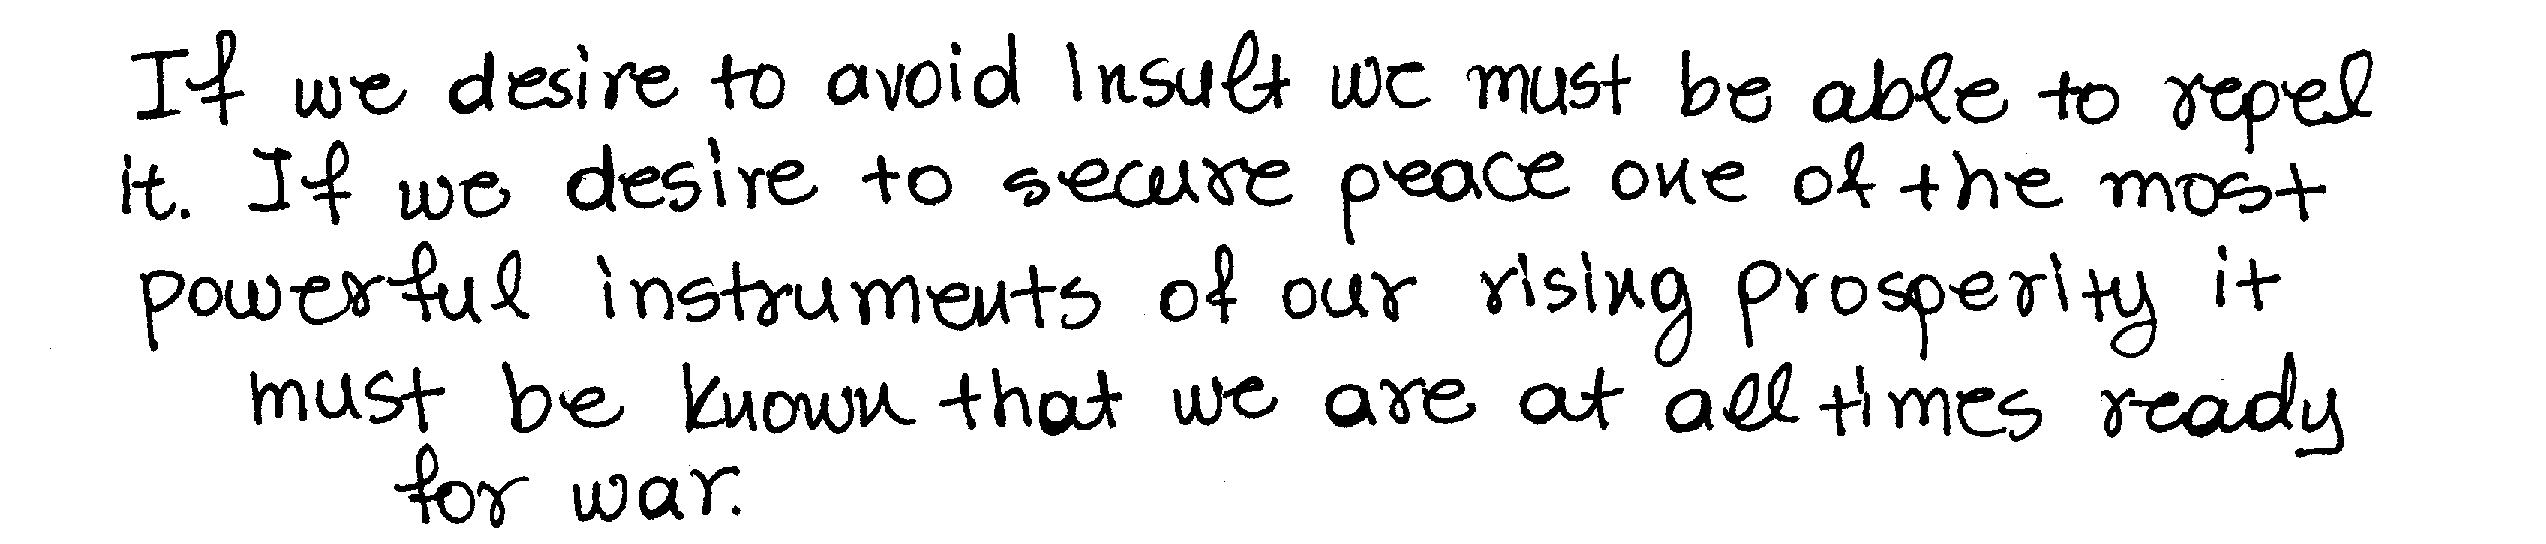 If we desire to avoid insult we must be able to repel
it. If we desire to secure peace one of the most
powerful instruments of our rising prosperity it
must be known that we are at all times ready
for war.